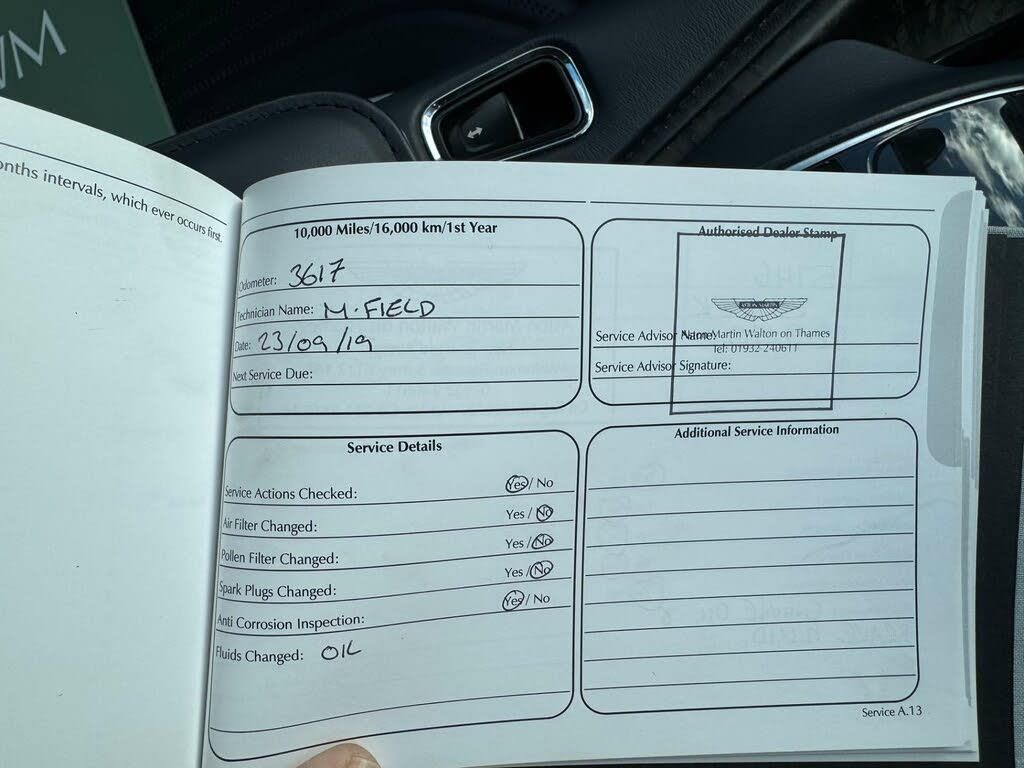 WM
onths intervals, which ever occurs first.
10,000 Miles/16,000 km/1st Year
Odometer: 3617
Technician Name: M. FIELD
Date: 23/09/19
Next Service Due:
Authorised Dealer Stamp
ASTON MARTIN
Service Advisor Name:
Aston Martin Walton on Thames
Tel: 01932 240611
Service Advisor Signature:
Service Details
Service Actions Checked: Yes / No
Air Filter Changed: Yes / No
Pollen Filter Changed: Yes / No
Spark Plugs Changed: Yes / No
Anti Corrosion Inspection: Yes / No
Fluids Changed: OIL
Additional Service Information
Service A.13